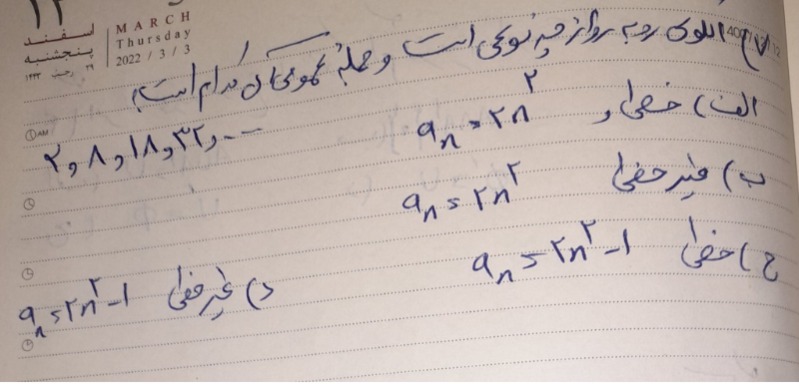 ۱۲
اسفند
پنجشنبه
MARCH
Thursday
2022 / 3 / 3
۷) الگوی روبه رو از چه نوعی است و جمله عمومی آن کدام است؟
۲, ۸, ۱۸, ۳۲, ...
الف) خطی و aₙ = ۲n²
ب) غیر خطی aₙ = ۲n²
ج) خطی aₙ = ۲n² - ۱
د) غیر خطی aₙ = ۲n² - ۱